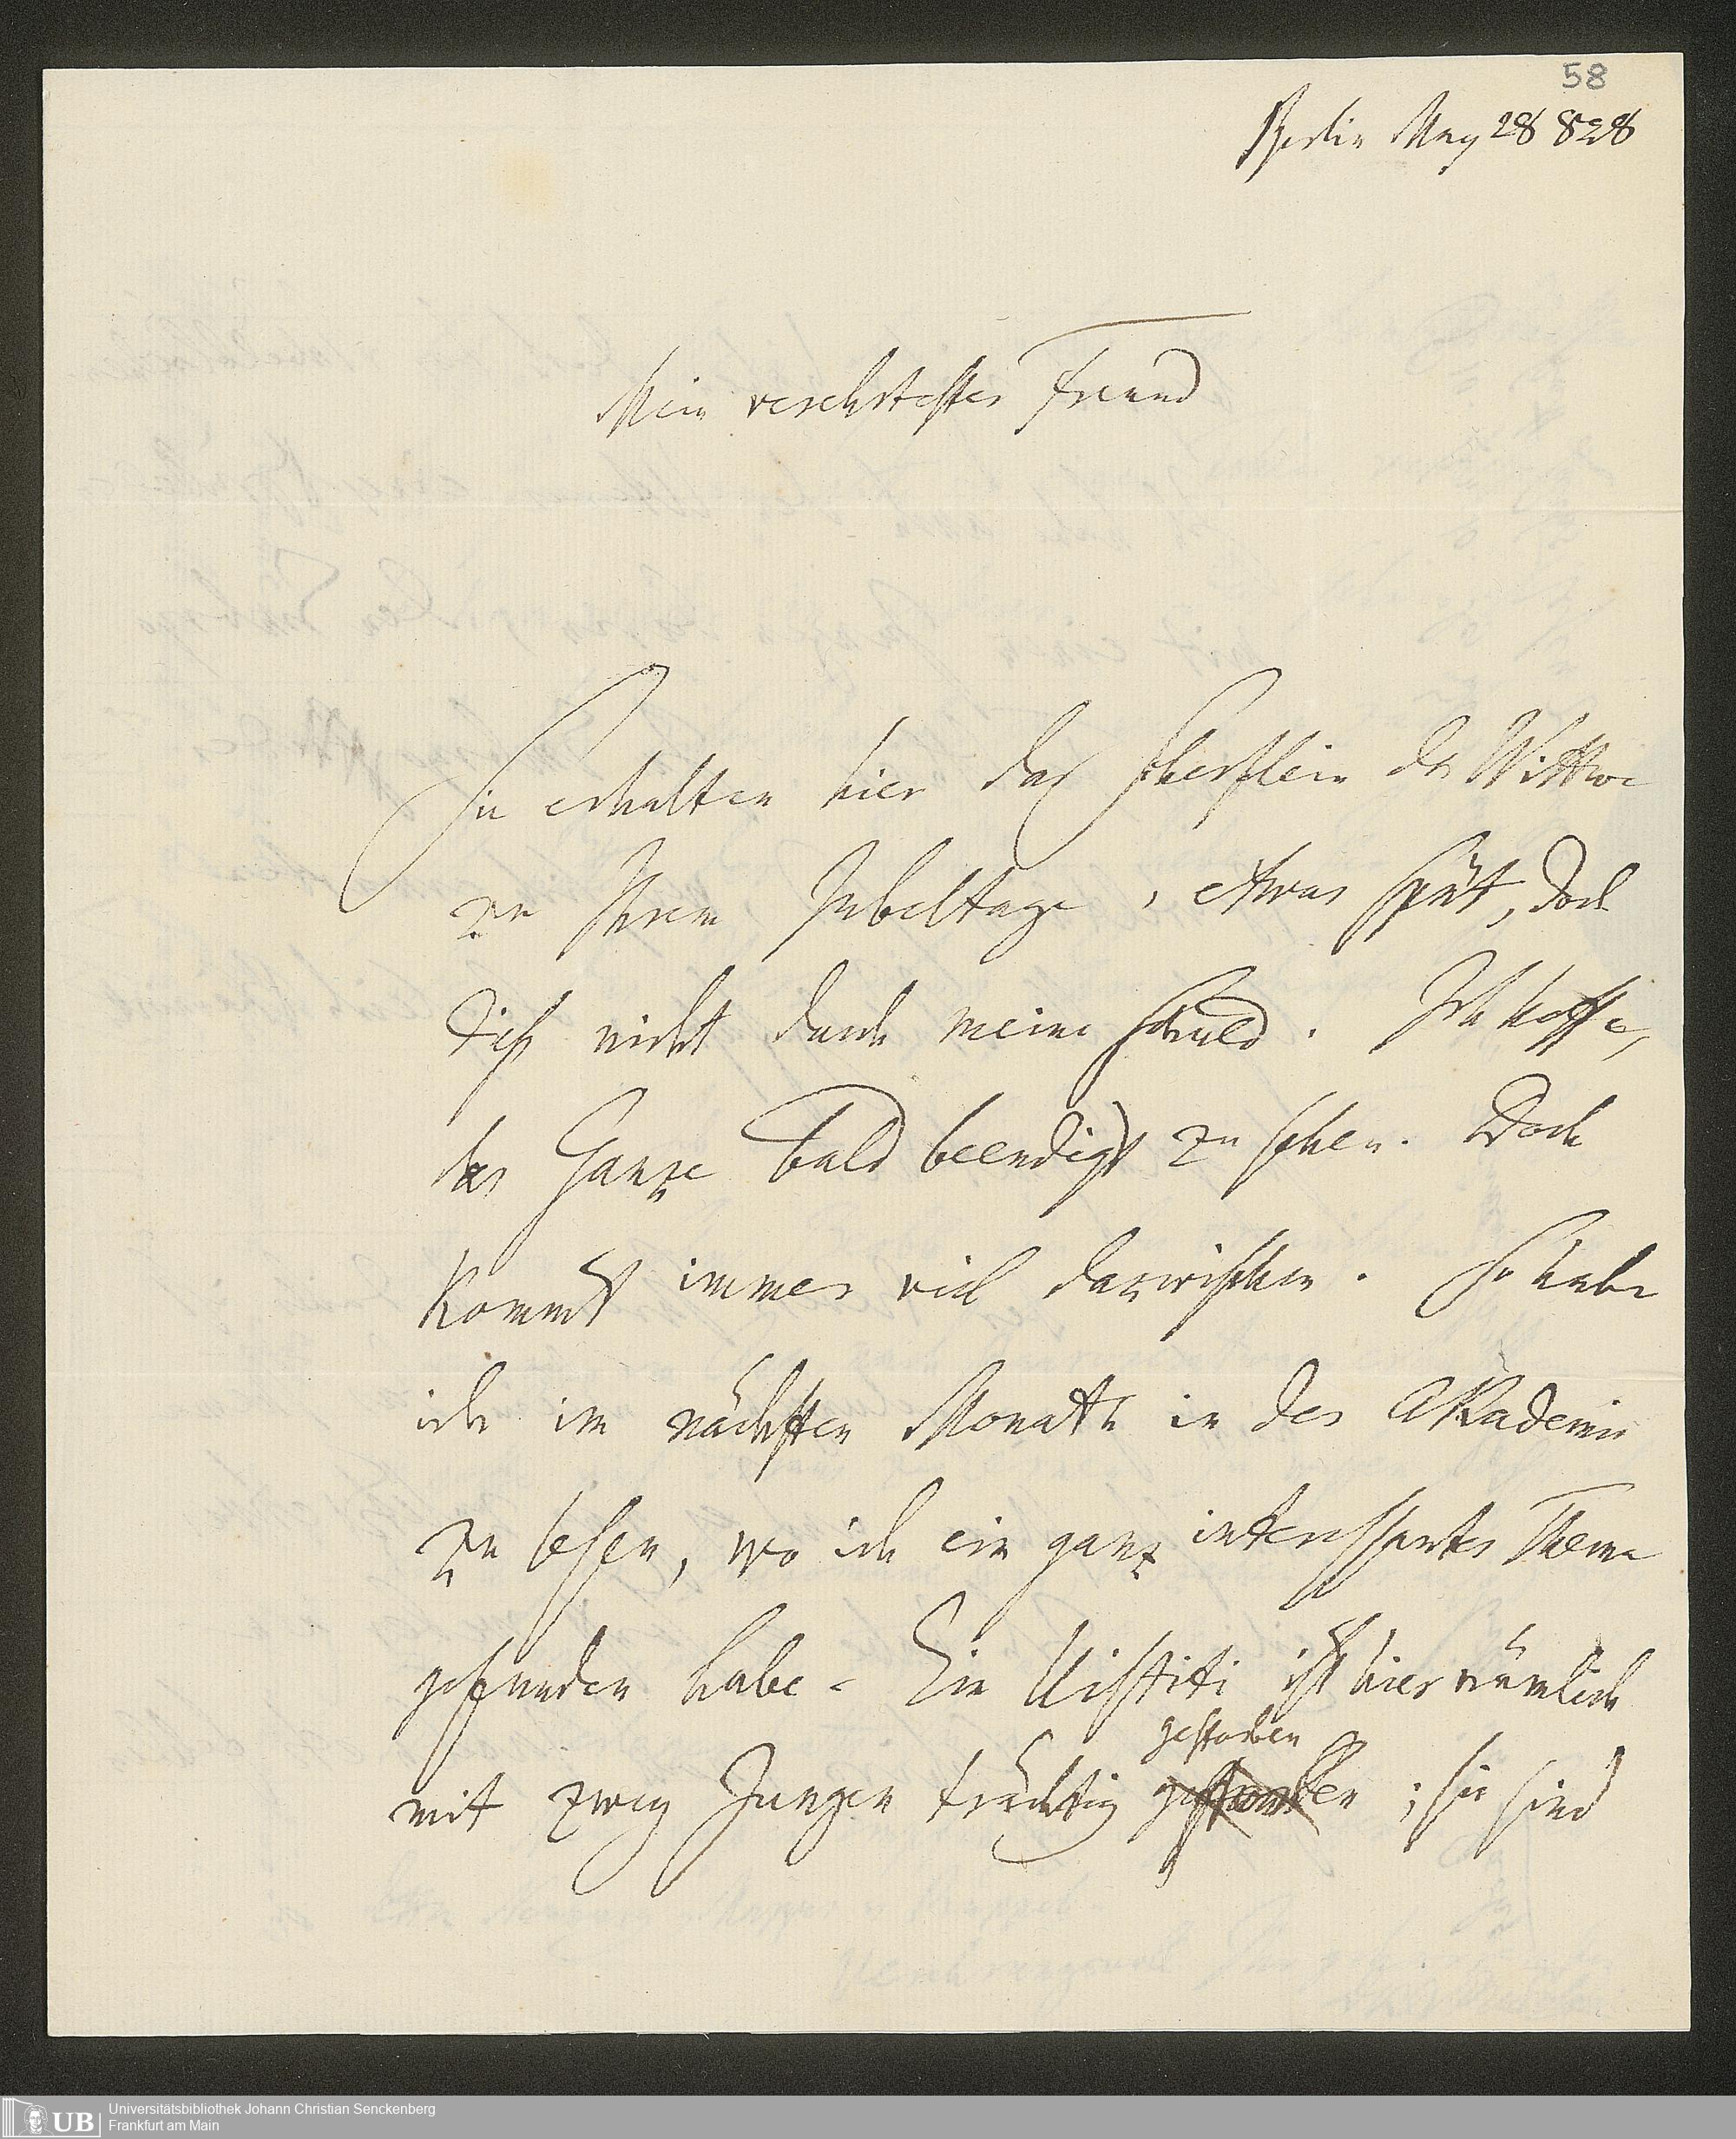 58
Berlin May 28 828
Mein verehrtester Freund
Sie erhalten hier das Scherflein der Wittwe
zu Ihrem Jubeltage, etwas spät, doch
dieß nicht durch meine Schuld. Ich hoffe,
das Ganze bald beendigt zu sehen. Doch
kommt immer viel dazwischen. So habe
ich im nächsten Monath in der Akademie
zu lesen, wo ich ein ganz interessantes Thema
gefunden habe. Ein Uistiti ist hier nämlich
gestorben
mit zwey Jungen trächtig ; sie sind
UB
Universitätsbibliothek Johann Christian Senckenberg
Frankfurt am Main